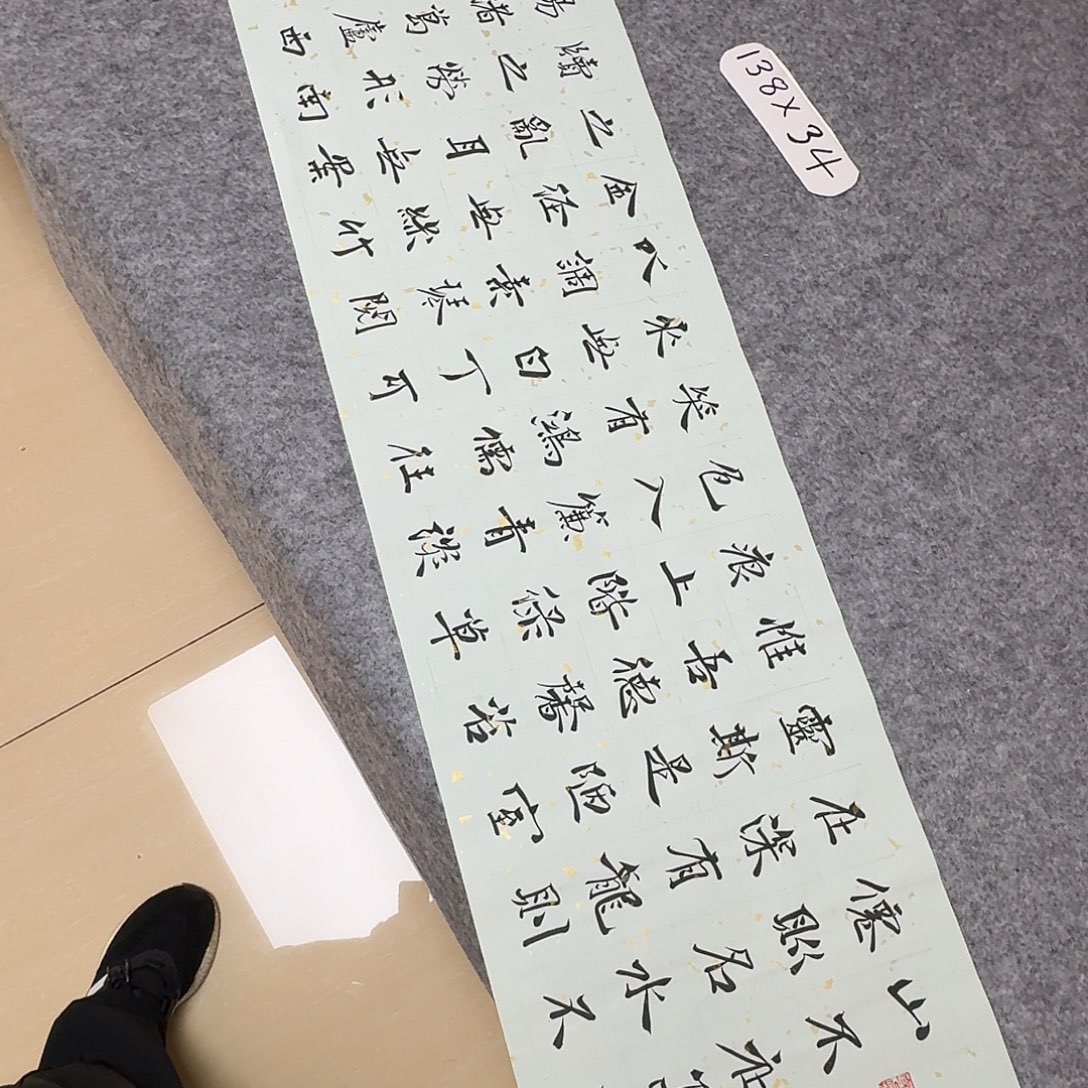 山不在
僊則名水不
在深有龍則
靈斯是陋室
惟吾德馨苔
痕上階綠草
色入簾青談
笑有鴻儒往
來無白丁可
以調素琴閱
金經無絲竹
之亂耳無案
牘之勞形南
陽諸葛廬西
138×34